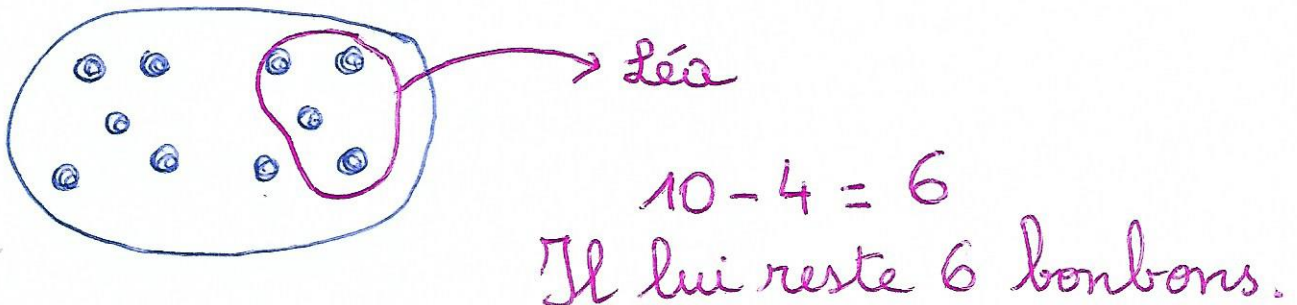 Léa
10 - 4 = 6
Il lui reste 6 bonbons.